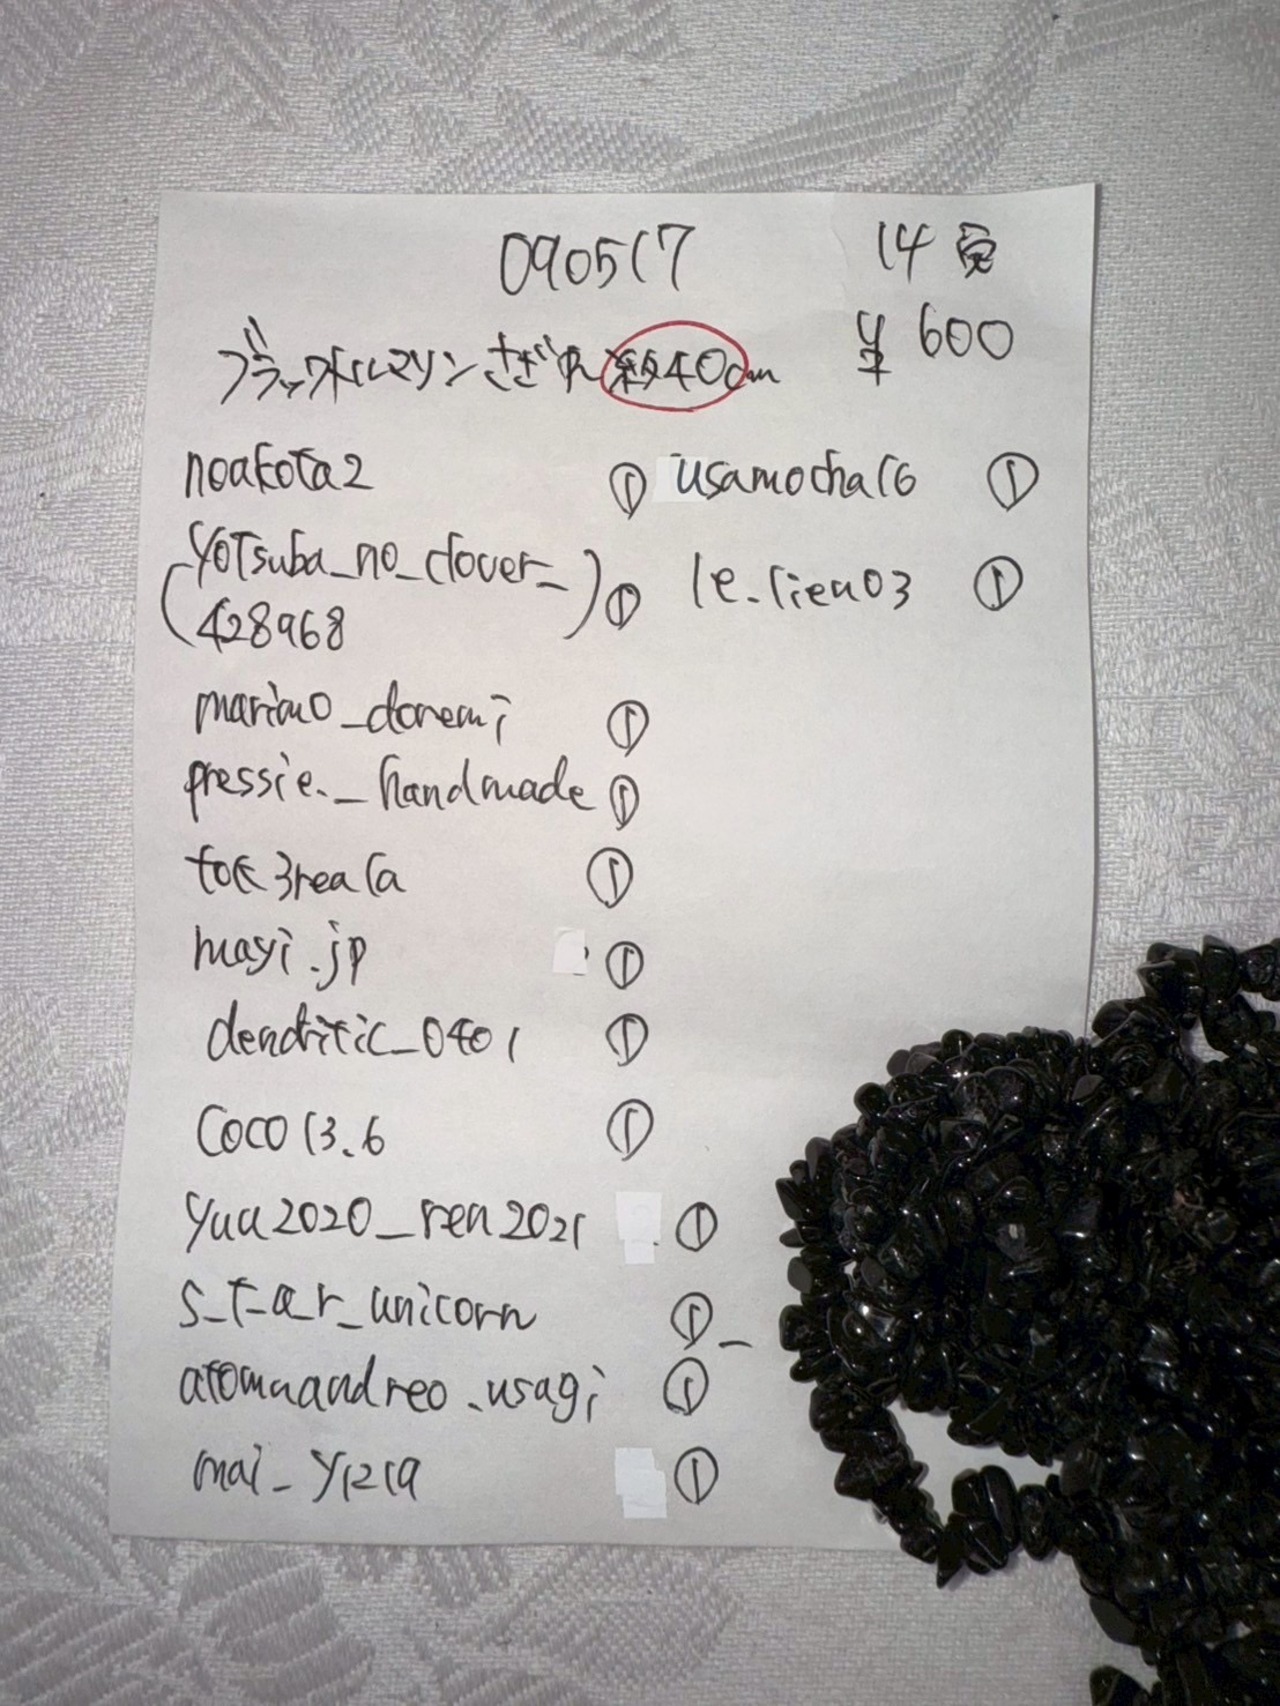 090517 14点
ブラックトルマリンさざれ約40cm ¥600
noakota2 ① usamocha16 ①
(yotsuba_no_clover_
428968) ① le.lien03 ①
marimo_doremi ①
pressie._handmade ①
tok3rea1a ①
mayi.jp ①
dendritic_0401 ①
coco13.6 ①
yuu2020_ren2021 ①
s_t_a_r_unicorn ①
atomuandreo.usagi ①
mai_y1219 ①